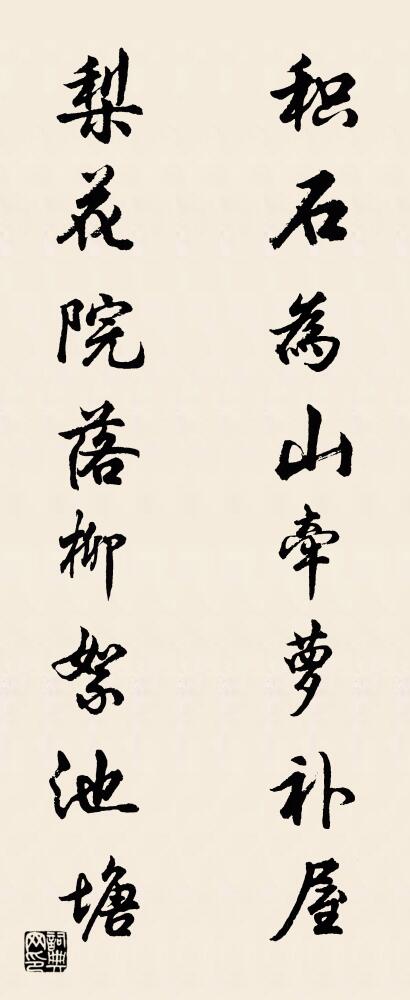 积石為山牵萝补屋
梨花院落柳絮池塘
詞典網印